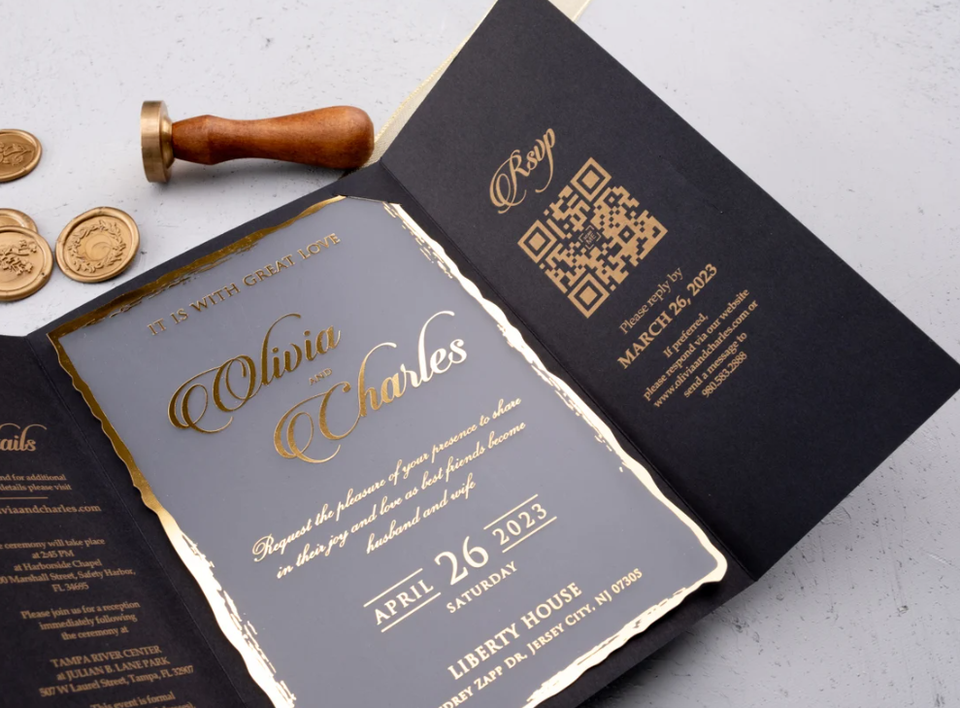 ails
nd for additional
details please visit
viaandcharles.com
ceremony will take place
at 2:45 PM
at Harborside Chapel
00 Marshall Street, Safety Harbor,
FL 34695
Please join us for a reception
immediately following
the ceremony at
TAMPA RIVER CENTER
at JULIAN B. LANE PARK
507 W Laurel Street, Tampa, FL 33907
This event is formal
IT IS WITH GREAT LOVE
Olivia
AND
Charles
Request the pleasure of your presence to share
in their joy and love as best friends become
husband and wife
APRIL 26 2023
SATURDAY
LIBERTY HOUSE
DREY ZAPP DR, JERSEY CITY, NJ 07305
Rsvp
Please reply by
MARCH 26, 2023
If preferred,
please respond via our website
www.oliviaandcharles.com or
send a message to
980.583.2888